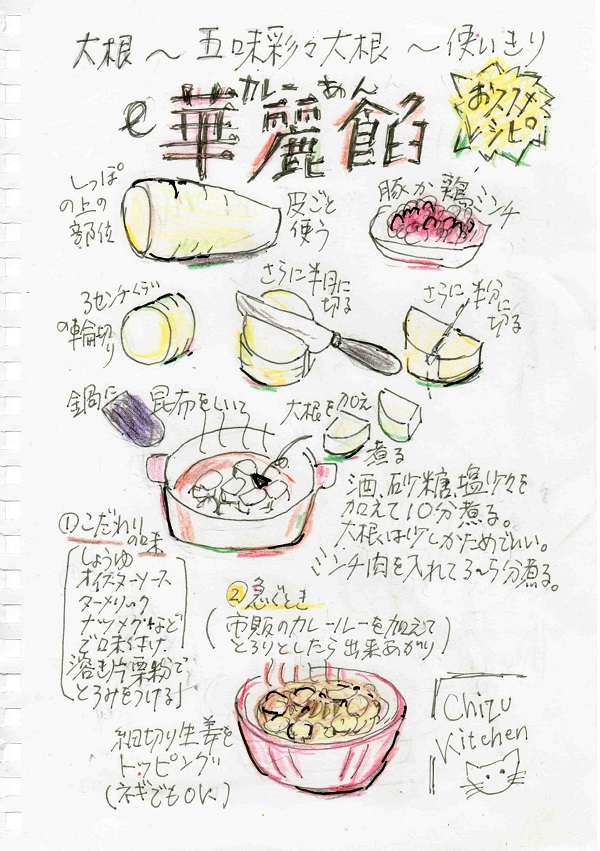 大根～五味彩々大根～使いきり
カレーあん
e華麗餡
おススメ
レシピ。
しっぽ
の上の
部位
皮ごと
使う
豚か鶏ミンチ
3センチくらい
の輪切り
さらに半月に
切る
さらに半分に
切る
鍋に
昆布をしいて
大根を加え
煮る
酒、砂糖、塩少々を
加えて10分煮る。
大根は少しかためでいい。
ミンチ肉を入れて3～5分煮る。
①こだわり
の味
しょうゆ
オイスターソース
ターメリック
ナツメグなど
で味付け
溶き片栗粉で
とろみをつける
②急ぐとき
(市販のカレールーを加えて
とろりとしたら出来あがり)
細切り生姜を
トッピング
(ネギでもOK)
Chizu
Kitchen